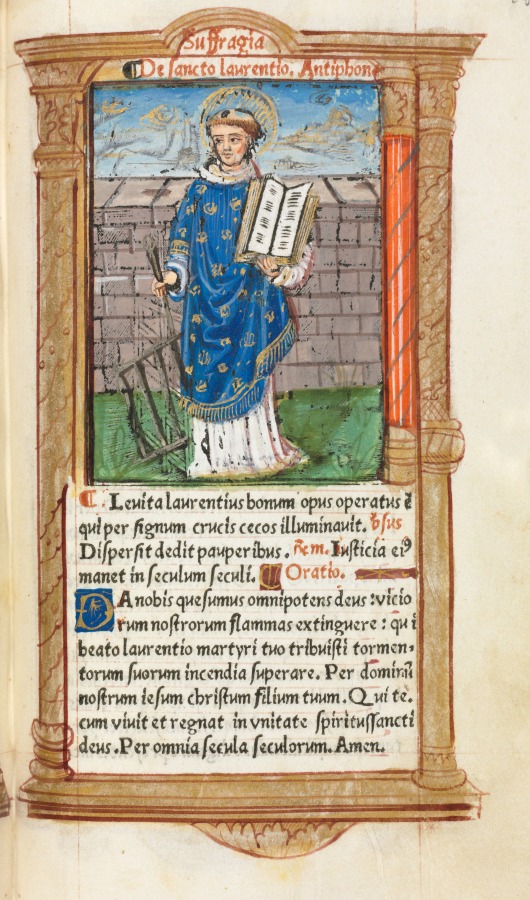 Suffragia
De sancto laurentio. Antiphona
Leuita laurentius bonum opus operatus ē
qui per signum crucis cecos illuminauit. v̄sus
Dispersit dedit pauperibus. r̄em. Iusticia eiꝰ
manet in seculum seculi. Oratio.
DA nobis quesumus omnipotens deus : vicio
rum nostrorum flammas extinguere : qui
beato laurentio martyri tuo tribuisti tormen-
torum suorum incendia superare. Per dominū
nostrum iesum christum filium tuum. Qui te
cum viuit et regnat in vnitate spiritussancti
deus. Per omnia secula seculorum. Amen.